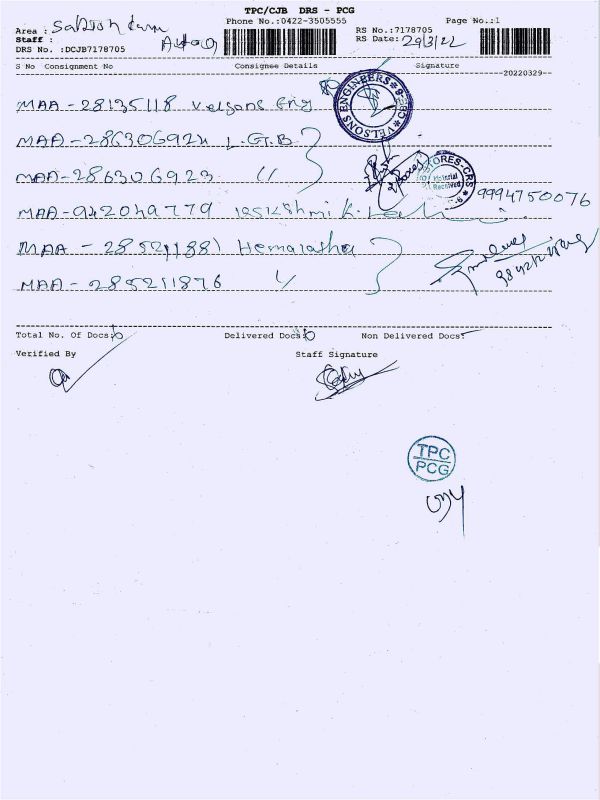 TPC/CJB DRS - PCG
Phone No.:0422-3505555 Page No.:1
Area :
Staff :
DRS No. :DCJB7178705
RS No.:7178705
RS Date: 29/3/22
S No Consignment No Consignee Details Signature
--20220329--
MAA-28135118 Velsons Eng
VELSONS ENGINEERS
MAA-286306924 L.G.B
MAA-286306923 "
STORES-CRS
Material Received
9994750076
MAA-942049779
MAA - 285211881 Hemalatha
MAA - 285211876 "
Total No. Of Docs:6 Delivered Docs:6 Non Delivered Docs:-
Verified By Staff Signature
TPC
PCG